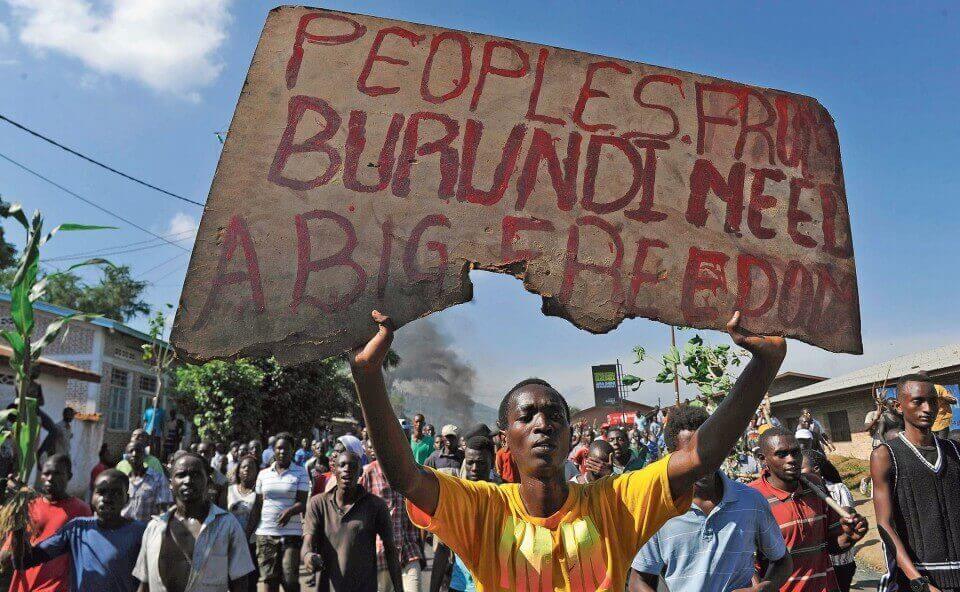 PEOPLES. FROM
BURUNDI NEED
A BIG FREEDOM